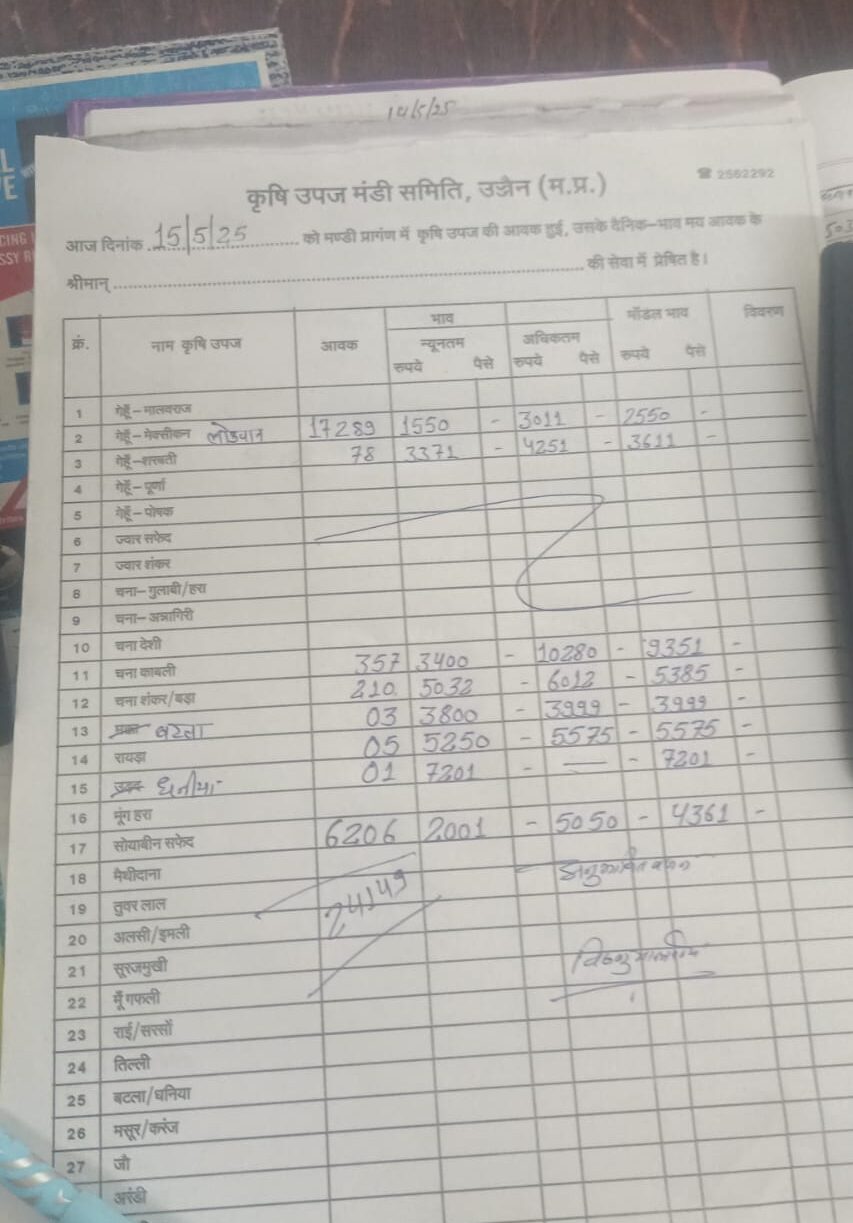 14/5/25
कृषि उपज मंडी समिति, उज्जैन (म.प्र.) ☎ 2562292
आज दिनांक 15/5/25 को मण्डी प्रागंण में कृषि उपज की आवक हुई, उसके दैनिक-भाव मय आवक के
श्रीमान् की सेवा में प्रेषित है।
क्रं. नाम कृषि उपज आवक भाव मॉडल भाव विवरण
न्यूनतम अधिकतम
रुपये पैसे रुपये पैसे रुपये पैसे
1 गेहूँ-मालवराज
2 गेहूँ-मेक्सीकन लोकवान 17289 1550 - 3011 - 2550 -
3 गेहूँ-शरबती 78 3371 - 4251 - 3611 -
4 गेहूँ-पूर्णा
5 गेहूँ-पोषक
6 ज्वार सफेद
7 ज्वार शंकर
8 चना-गुलाबी/हरा
9 चना-अन्नागिरी
10 चना देशी
11 चना काबली 357 3400 - 10280 - 9351 -
12 चना शंकर/बड़ा 210 5032 - 6012 - 5385 -
13 बटला 03 3800 - 3999 - 3999 -
14 रायड़ा 05 5250 - 5575 - 5575 -
15 उड़द धनीया- 01 7201 - — - 7201 -
16 मूंग हरा
17 सोयाबीन सफेद 6206 2001 - 5050 - 4361 -
18 मैथीदाना
19 तुवर लाल
24149
20 अलसी/इमली
21 सूरजमुखी
22 मूँगफली
23 राई/सरसों
24 तिल्ली
25 बटला/धनिया
26 मसूर/करंज
27 जौ
अरंडी